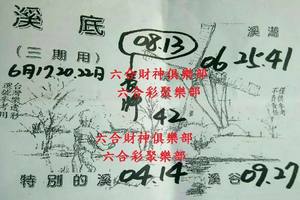 溪底
(三期用)
6月17.20.22日
08.13
溪湖
06 25.41
六合財神俱樂部
六合彩聚樂部
42
六合財神俱樂部
六合彩聚樂部
特別的溪
04.14
溪谷
09.27